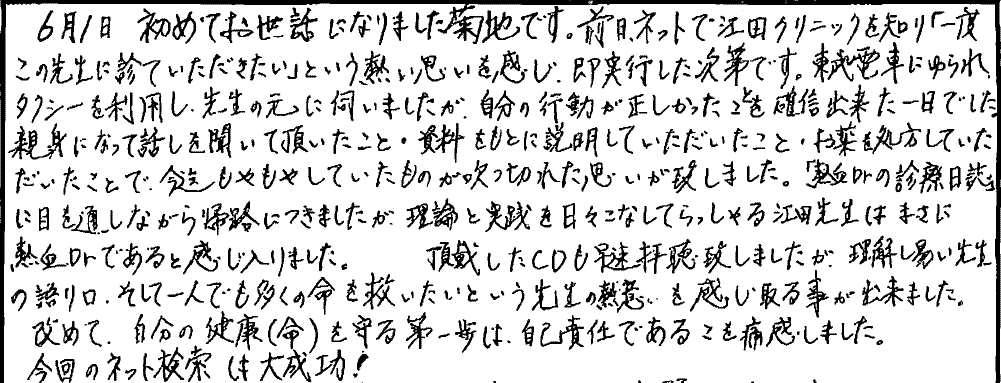 6月1日 初めてお世話になりました菊地です。前日ネットで江田クリニックを知り「一度
この先生に診ていただきたい」という熱い思いを感じ、即実行した次第です。東武電車にゆられ、
タクシーを利用し、先生の元に伺いましたが、自分の行動が正しかったことを確信出来た一日でした
親身になって話しを聞いて頂いたこと・資料をもとに説明していただいたこと・お薬を処方していた
だいたことで、今迄もやもやしていたものが吹っ切れた思いが致しました。「熱血Drの診療日誌」
に目を通しながら帰路につきましたが、理論と実践を日々こなしてらっしゃる江田先生はまさに
熱血Drであると感じ入りました。 頂戴したCDも早速拝聴致しましたが、理解し易い先生
の語り口、そして一人でも多くの命を救いたいという先生の熱意を感じ取る事が出来ました。
改めて、自分の健康(命)を守る第一歩は、自己責任であることを痛感しました。
今回のネット検索は大成功!